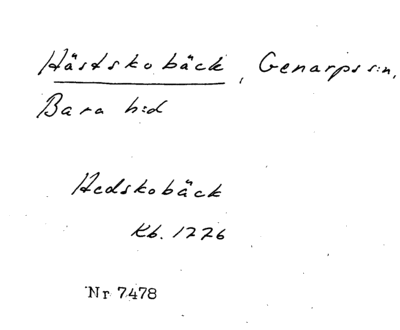 Hästskobäck, Genarps s:n,
Bara h:d
Hedskobäck
Kb. 1776
Nr 7478